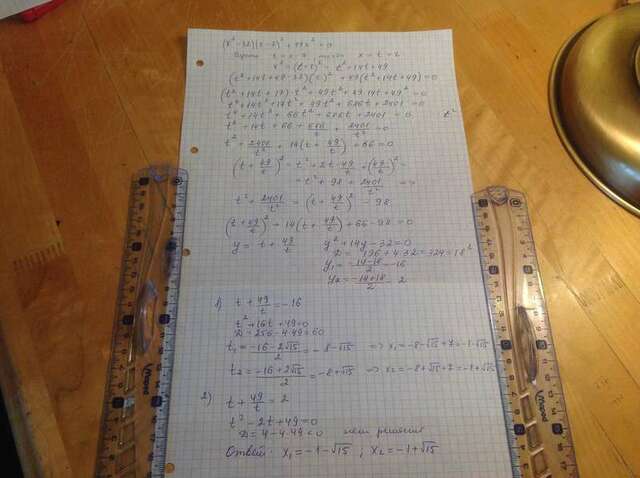 (x² - 32)(x - 7)² + 49x² = 0
x = t + 7
x² = (t+7)² = t² + 14t + 49
(t² + 14t + 49 - 32)(t)² + 49(t² + 14t + 49) = 0
(t² + 14t + 17)·t² + 49t² + 49·14t + 49² = 0
t⁴ + 14t³ + 17t² + 49t² + 686t + 2401 = 0
t⁴ + 14t³ + 66t² + 686t + 2401 = 0 t²
t² + 14t + 66 + 686/t + 2401/t² = 0
t² + 2401/t² + 14(t + 49/t) + 66 = 0
(t + 49/t)² = t² + 2t·49/t + (49/t)² =
= t² + 98 + 2401/t² =>
t² + 2401/t² = (t + 49/t)² - 98
(t + 49/t)² + 14(t + 49/t) + 66 - 98 = 0
y = t + 49/t y² + 14y - 32 = 0
D = 196 + 4·32 = 324 = 18²
y₁ = (-14-18)/2 = -16
y₂ = (-14+18)/2 = 2
1) t + 49/t = -16
t² + 16t + 49 = 0
D = 256 - 4·49 = 60
t₁ = (-16 - 2√15)/2 = -8 - √15 => x₁ = -8 - √15 + 7 = -1 - √15
t₂ = (-16 + 2√15)/2 = -8 + √15 => x₂ = -8 + √15 + 7 = -1 + √15
2) t + 49/t = 2
t² - 2t + 49 = 0
D = 4 - 4·49 < 0 нет решений
Ответ: x₁ = -1 - √15 ; x₂ = -1 + √15
Maped
Maped